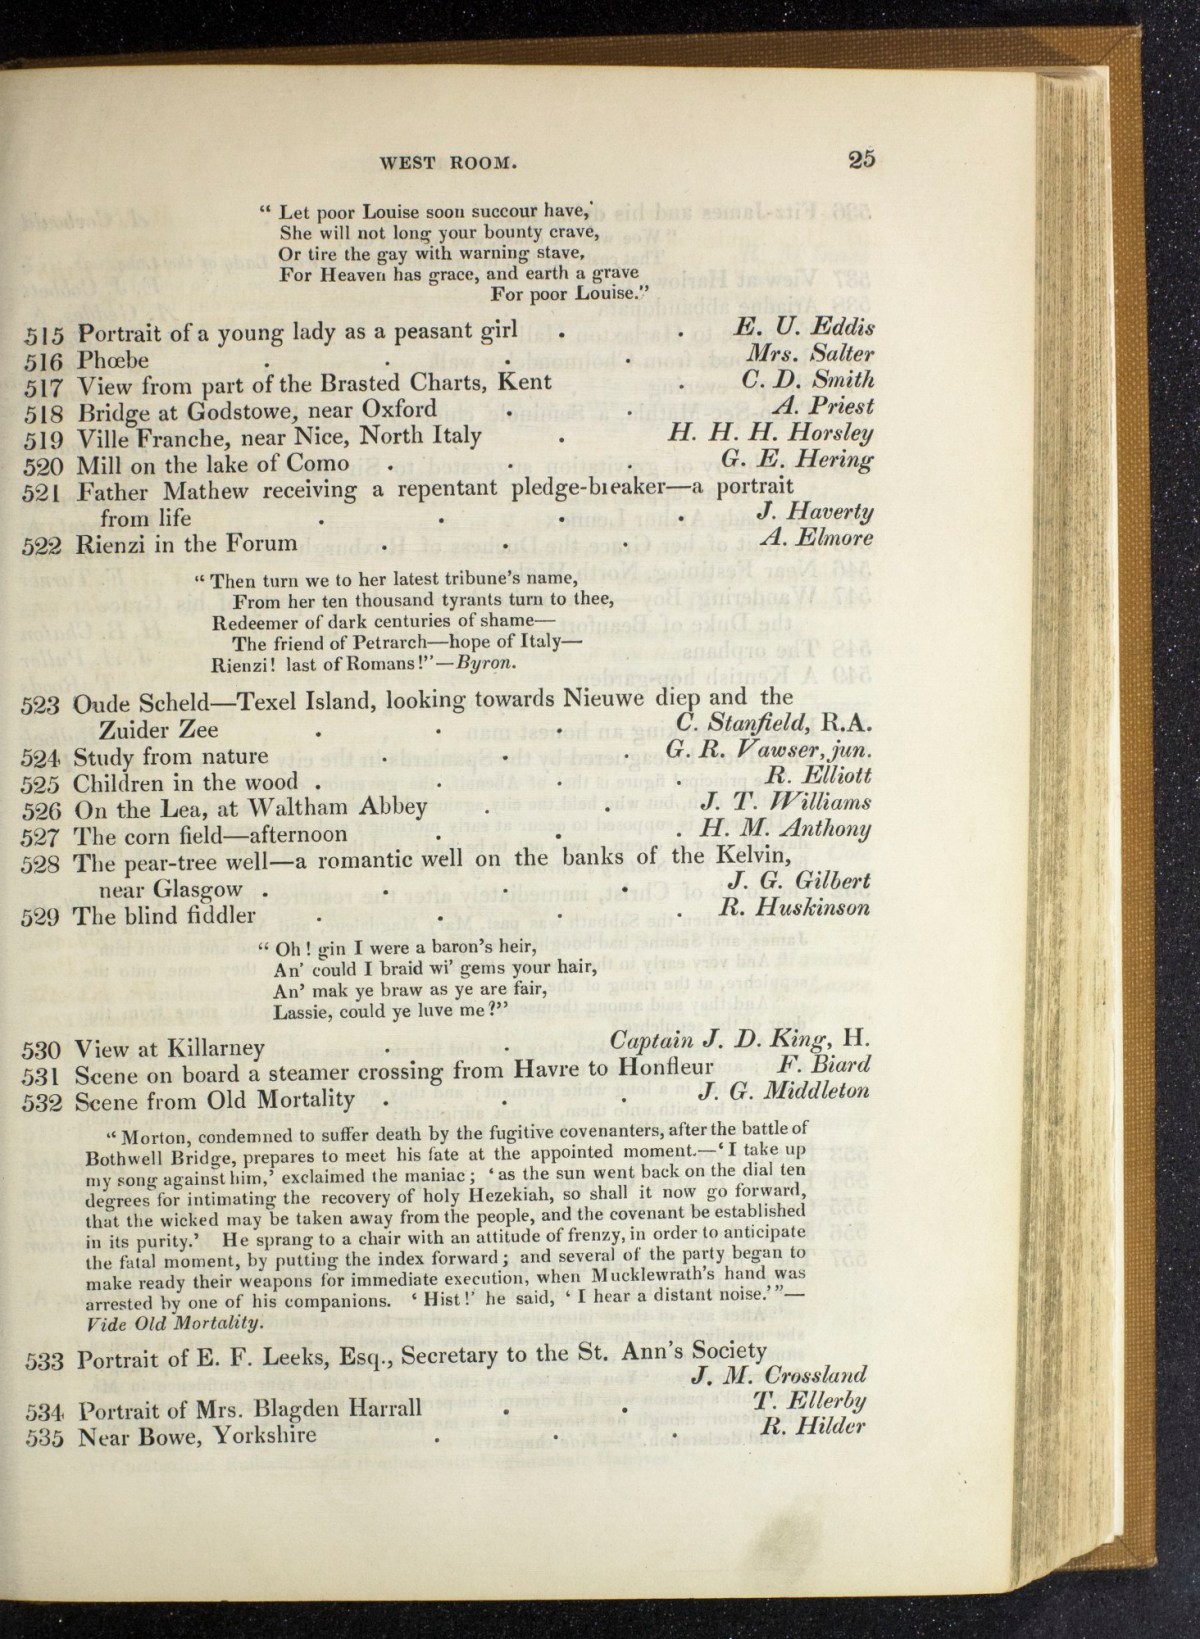 WEST ROOM. 25
“ Let poor Louise soon succour have,
She will not long your bounty crave,
Or tire the gay with warning stave,
For Heaven has grace, and earth a grave
For poor Louise.”
515 Portrait of a young lady as a peasant girl . . E. U. Eddis
516 Phœbe . . . . Mrs. Salter
517 View from part of the Brasted Charts, Kent . C. D. Smith
518 Bridge at Godstowe, near Oxford . . A. Priest
519 Ville Franche, near Nice, North Italy . H. H. H. Horsley
520 Mill on the lake of Como . . . G. E. Hering
521 Father Mathew receiving a repentant pledge-breaker—a portrait
from life . . . . J. Haverty
522 Rienzi in the Forum . . . A. Elmore
“ Then turn we to her latest tribune’s name,
From her ten thousand tyrants turn to thee,
Redeemer of dark centuries of shame—
The friend of Petrarch—hope of Italy—
Rienzi! last of Romans!”—Byron.
523 Oude Scheld—Texel Island, looking towards Nieuwe diep and the
Zuider Zee . . . C. Stanfield, R.A.
524 Study from nature . . . G. R. Vawser, jun.
525 Children in the wood . . . . R. Elliott
526 On the Lea, at Waltham Abbey . . J. T. Williams
527 The corn field—afternoon . . . H. M. Anthony
528 The pear-tree well—a romantic well on the banks of the Kelvin,
near Glasgow . . . . J. G. Gilbert
529 The blind fiddler . . . . R. Huskinson
“ Oh! gin I were a baron’s heir,
An’ could I braid wi’ gems your hair,
An’ mak ye braw as ye are fair,
Lassie, could ye luve me?”
530 View at Killarney . . Captain J. D. King, H.
531 Scene on board a steamer crossing from Havre to Honfleur F. Biard
532 Scene from Old Mortality . . . J. G. Middleton
“ Morton, condemned to suffer death by the fugitive covenanters, after the battle of
Bothwell Bridge, prepares to meet his fate at the appointed moment.—‘ I take up
my song against him,’ exclaimed the maniac; ‘ as the sun went back on the dial ten
degrees for intimating the recovery of holy Hezekiah, so shall it now go forward,
that the wicked may be taken away from the people, and the covenant be established
in its purity.’ He sprang to a chair with an attitude of frenzy, in order to anticipate
the fatal moment, by putting the index forward; and several of the party began to
make ready their weapons for immediate execution, when Mucklewrath’s hand was
arrested by one of his companions. ‘ Hist!’ he said, ‘ I hear a distant noise.’ ”—
Vide Old Mortality.
533 Portrait of E. F. Leeks, Esq., Secretary to the St. Ann’s Society
J. M. Crossland
534 Portrait of Mrs. Blagden Harrall . . T. Ellerby
535 Near Bowe, Yorkshire . . . R. Hilder